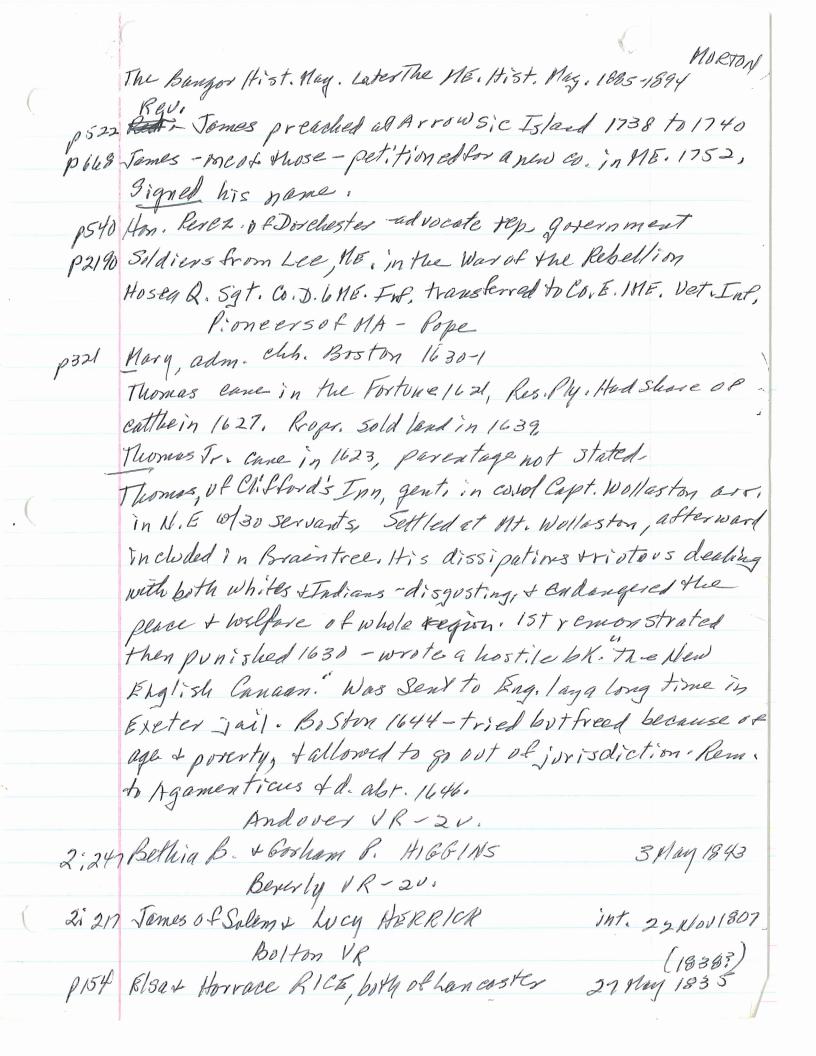 MORTON
The Bangor Hist. Mag. Later The ME. Hist. Mag. 1885-1894
Rev.
p522 James preached at Arrowsic Island 1738 to 1740
p668 James - one of those - petitioned for a new co. in ME. 1752,
Signed his name.
p540 Hon. Perez of Dorchester advocate rep. government
p2190 Soldiers from Lee, ME. in the War of the Rebellion
Hosea Q. Sgt. Co. D. 6 ME. Inf, transferred to Co. E. 1 ME. Vet. Inf,
Pioneers of MA - Pope
p321 Mary, adm. chh. Boston 1630-1
Thomas came in the Fortune 1621, Res. Ply. Had share of
cattle in 1627. Propr. sold land in 1639.
Thomas Jr. came in 1623, parentage not stated.
Thomas, of Clifford's Inn, gent. in co. w/ Capt. Wollaston arr.
in N.E w/30 servants, Settled at Mt. Wollaston, afterward
included in Braintree. His dissipations & riotous dealing
with both whites & Indians - disgusting, & endangered the
peace & welfare of whole region. 1st remonstrated
then punished 1630 - wrote a hostile bk. "The New
English Canaan." Was sent to Eng. lay a long time in
Exeter jail. Boston 1644 - tried but freed because of
age & poverty, & allowed to go out of jurisdiction. Rem.
to Agamenticus & d. abt. 1646.
Andover VR - 2v.
2:247 Bethia B. & Gorham P. HIGGINS 3 May 1843
Beverly VR - 2v.
2:217 James of Salem & Lucy HERRICK int. 22 Nov 1807
Bolton VR (1838?)
p154 Elsa & Horrace RICE, both of Lancaster 27 May 1835